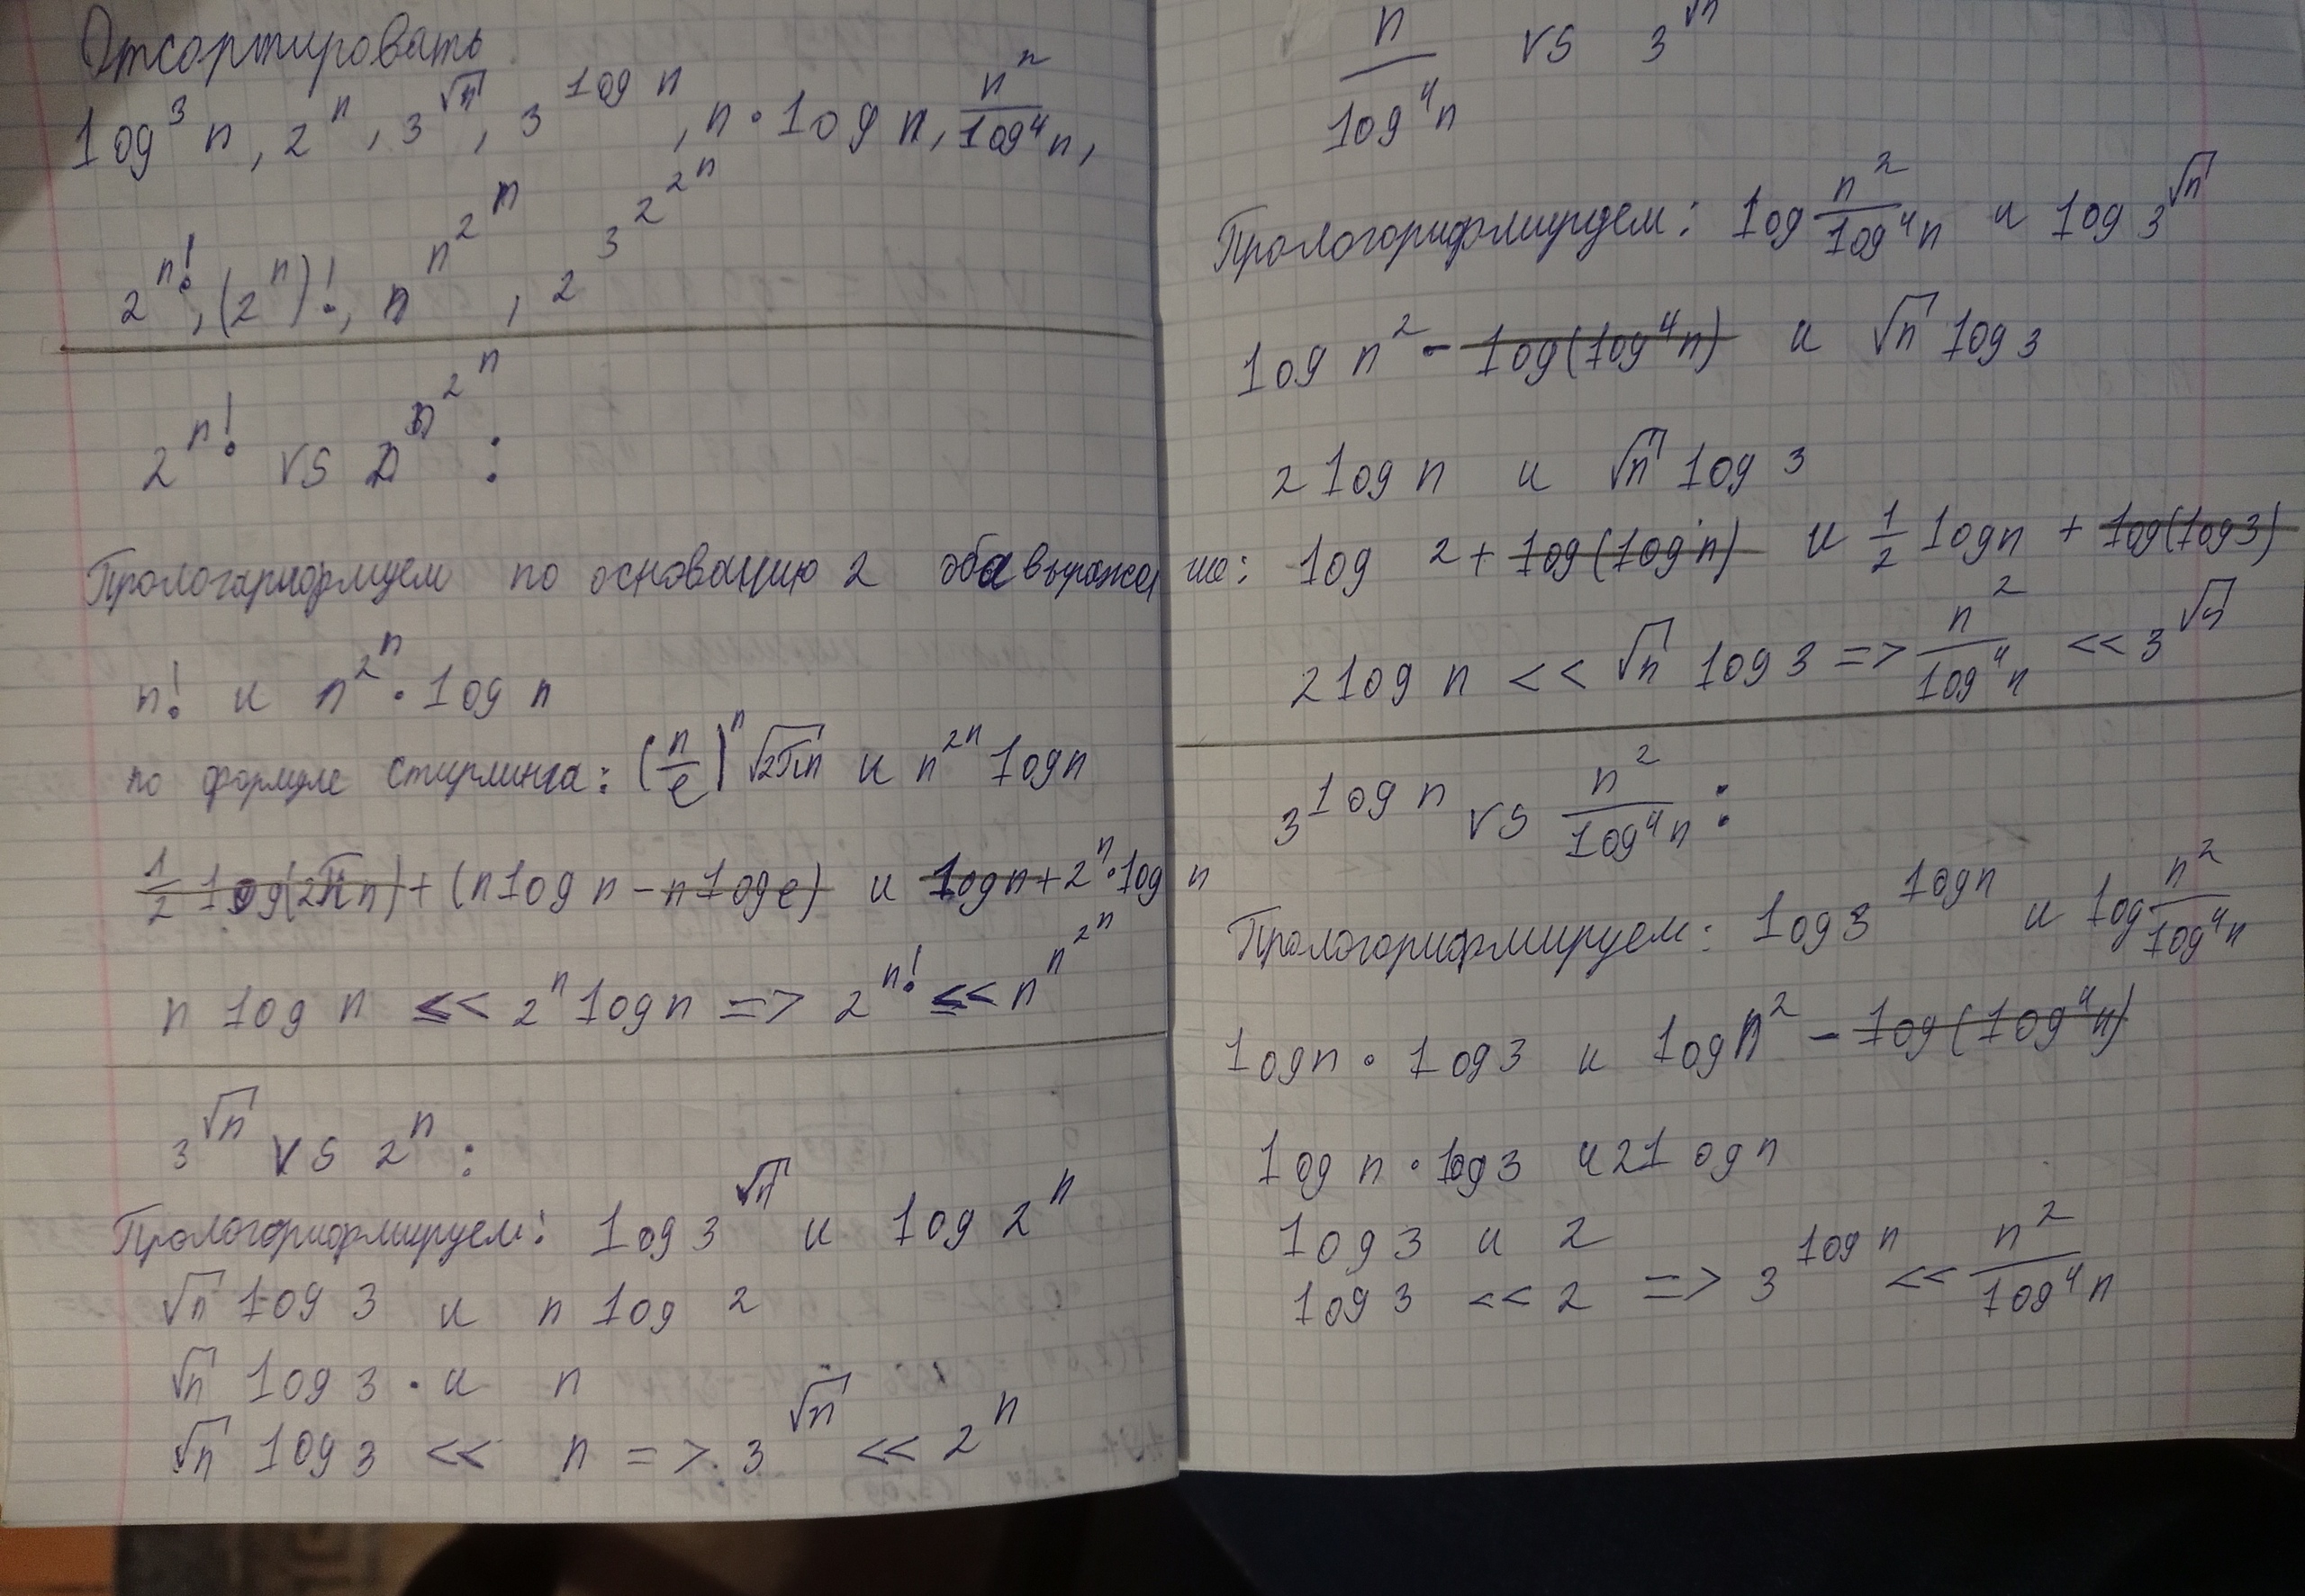 Отсортировать
log³ n, 2ⁿ, 3^√n, 3^log n, n · log n, n²/log⁴n,
2^n!, (2ⁿ)!, n^n^2^n, 2^3^2^2^n
2^n! vs n^n^2^n :
Прологарифмируем по основанию 2 оба выражения:
n! и n^2^n · log n
по формуле Стирлинга: (n/e)ⁿ √2πn и n^2n log n
1/2 log(2πn) + (n log n - n log e) и log n + 2ⁿ · log n
n log n << 2ⁿ log n => 2^n! << n^n^2^n
3^√n vs 2ⁿ :
Прологорифмируем: log 3^√n и log 2ⁿ
√n log 3 и n log 2
√n log 3 · и n
√n log 3 << n => 3^√n << 2ⁿ
n/log⁴n vs 3^√n
Прологорифмируем: log n²/log⁴n и log 3^√n
log n² - log(log⁴n) и √n log 3
2 log n и √n log 3
log 2 + log(log n) и 1/2 log n + log(log 3)
2 log n << √n log 3 => n²/log⁴n << 3^√n
3^log n vs n²/log⁴n :
Прологорифмируем: log 3^log n и log n²/log⁴n
log n · log 3 и log n² - log(log⁴n)
log n · log 3 и 2 log n
log 3 и 2
log 3 << 2 => 3^log n << n²/log⁴n